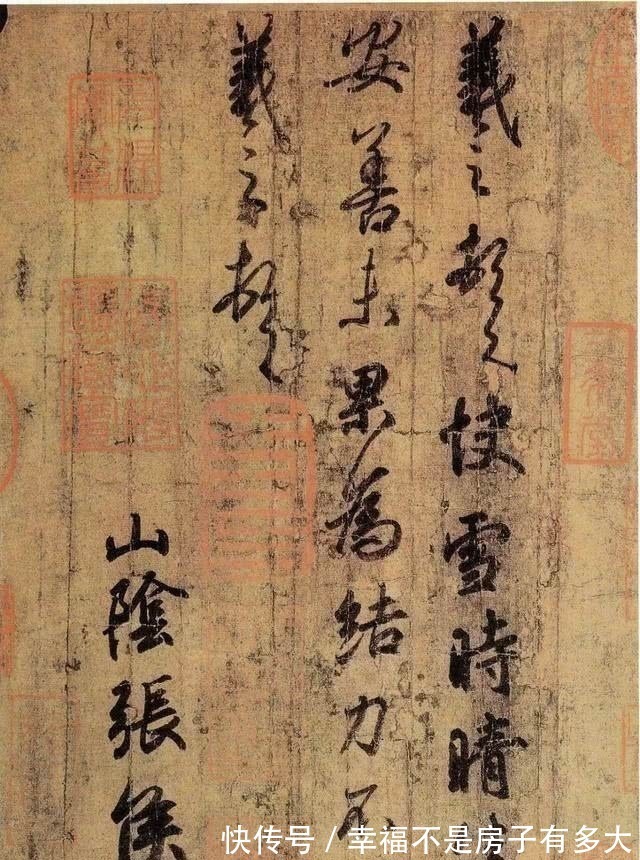 羲之頓首快雪時晴
安善未果為結力不
羲之頓首
山陰張侯
快传号 / 幸福不是房子有多大